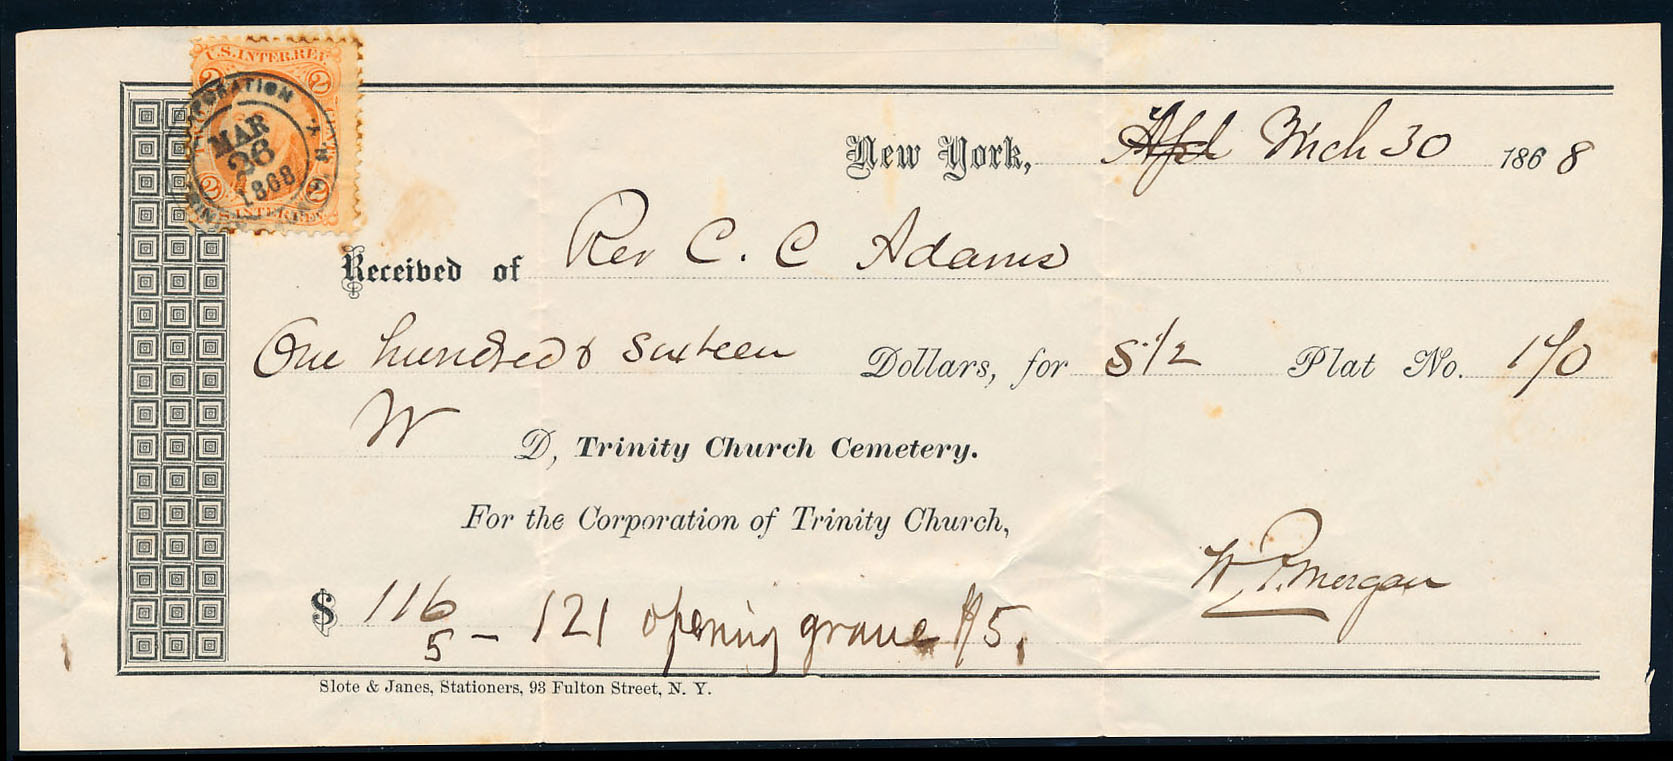 U.S. INTER. REV.
2 2
PORATION
MAR
26
1868
N.Y.
2 2
U.S. INTER. REV.
New York, Apl Mch 30 1868
Received of Rev C. C Adams
One hundred & sixteen Dollars, for S. 1/2 Plat No. 170
W D, Trinity Church Cemetery.
For the Corporation of Trinity Church,
W. P. Morgan
$ 116
5 – 121 opening grave $5.
Slote & Janes, Stationers, 93 Fulton Street, N. Y.